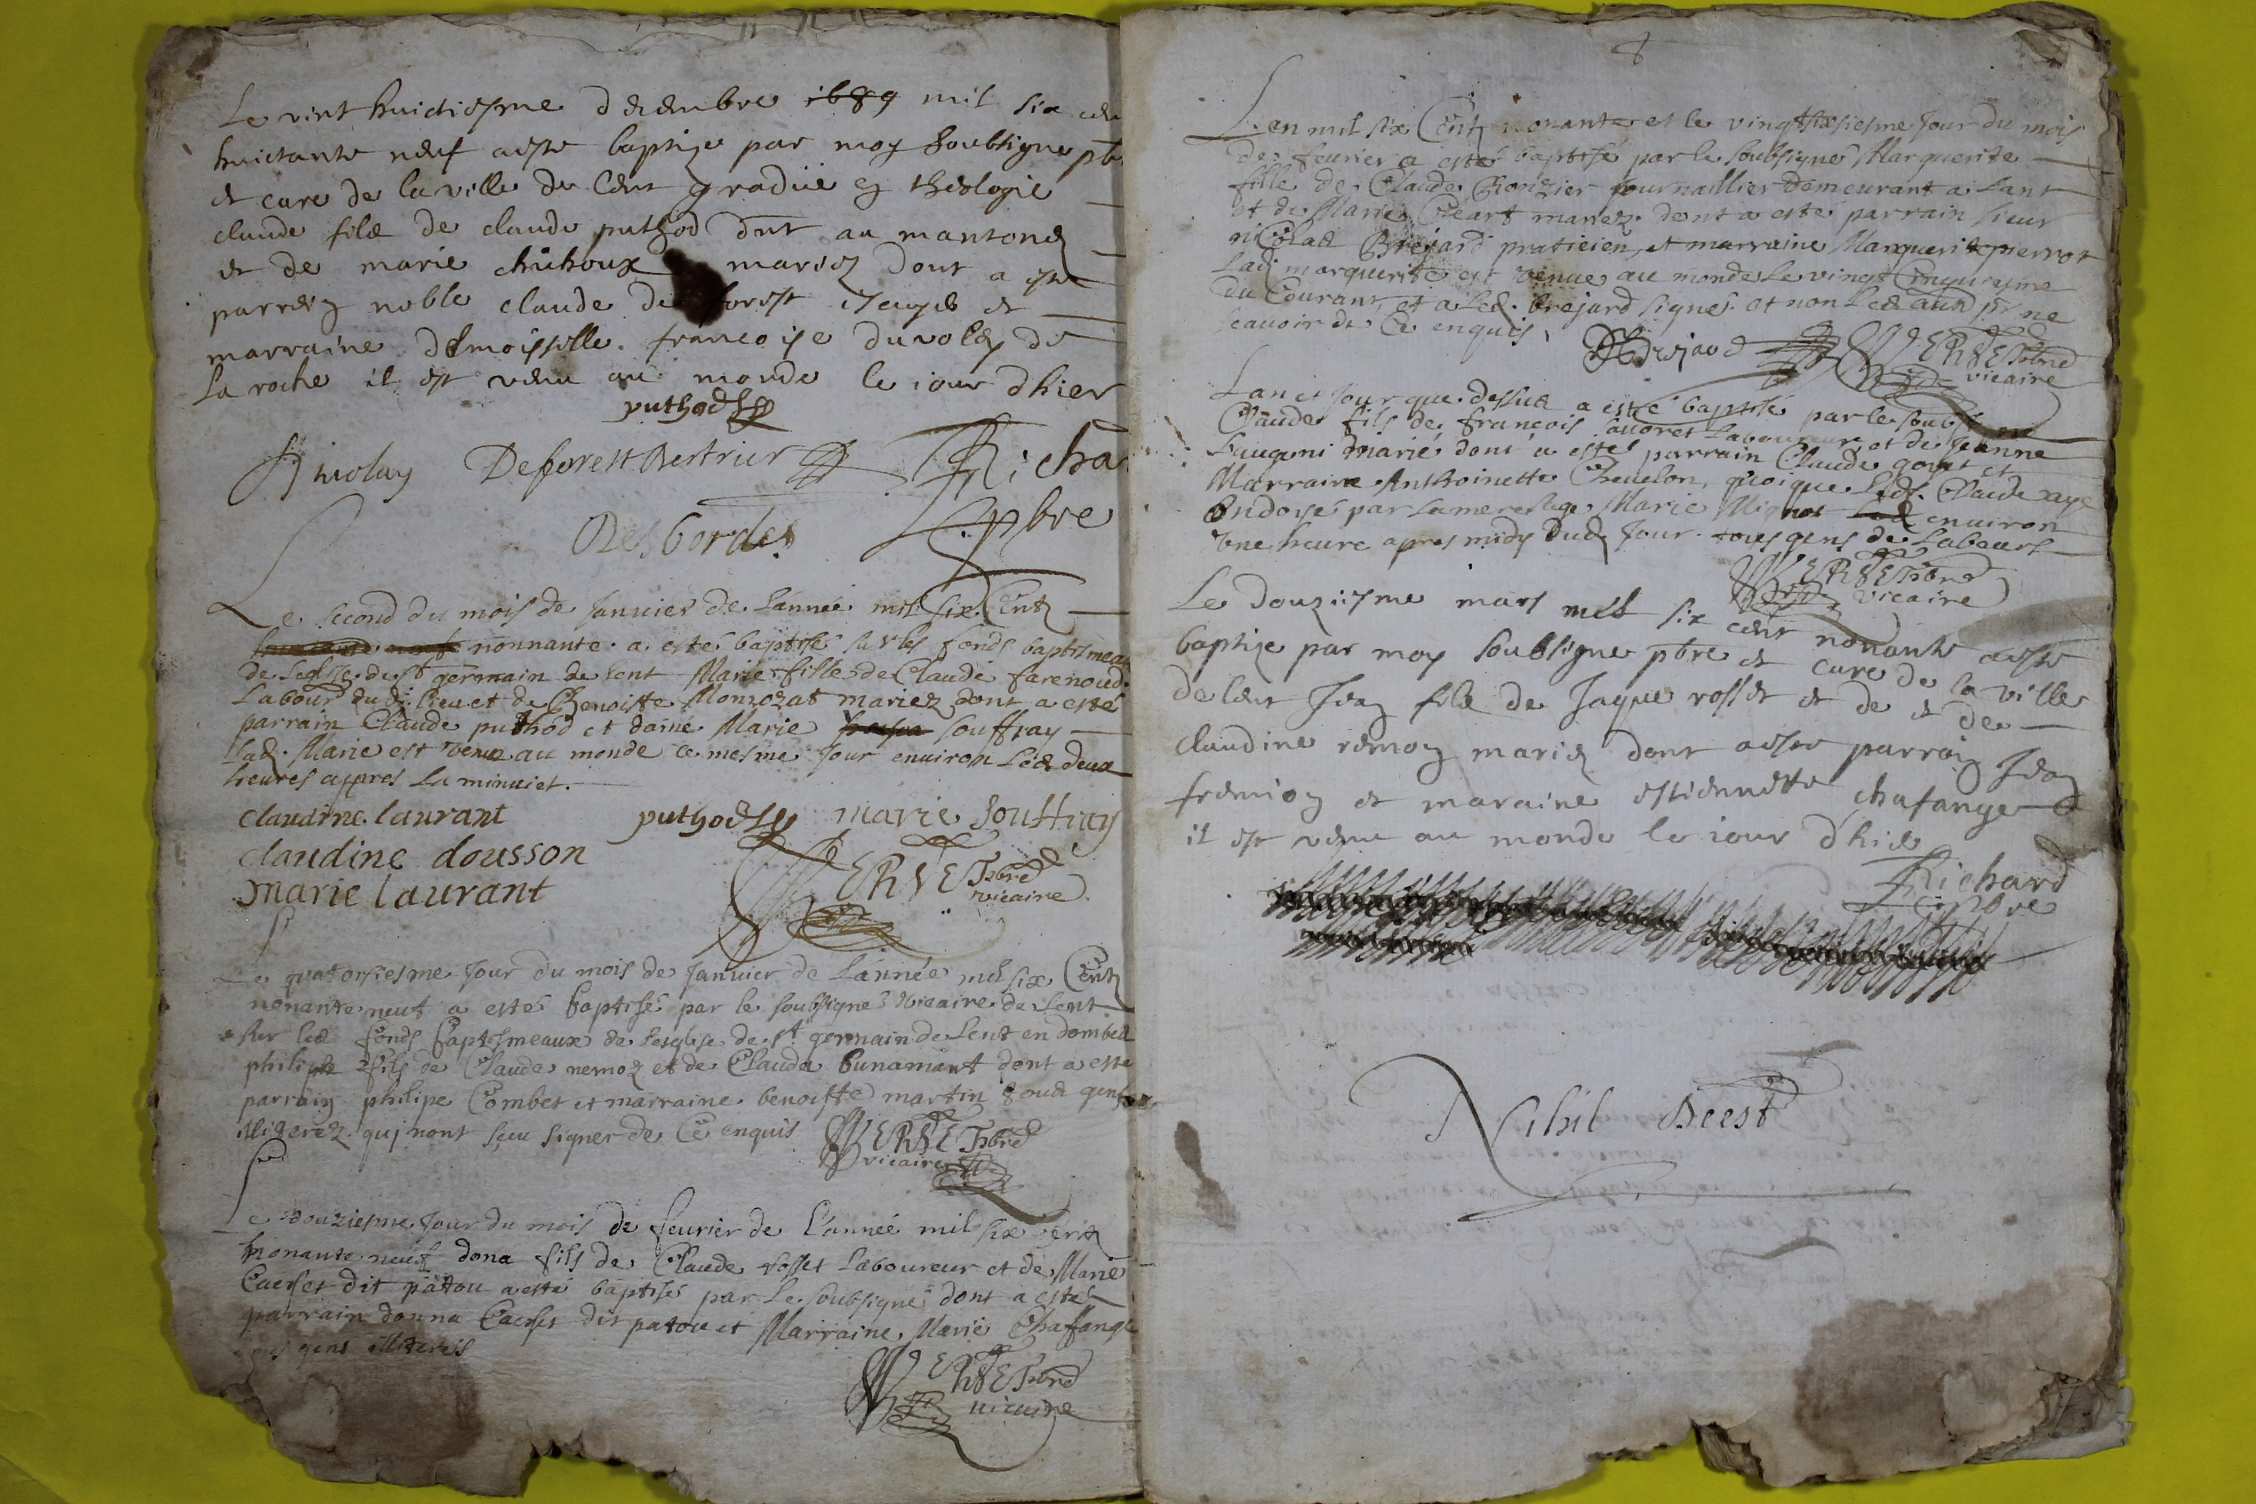 Le vint huictiesme decembre 1689 mil six cen
huictante neuf a este baptize par moy soubsigne pb
et cure de la ville de Lent gradue en theologie
claude filz de claude puthod dit au mantond
et de marie mariez dont a este
parrein noble claude de forest escuyer et
marraine demoiselle francoise duvoley de
la roche il est venu au monde le iour dhier
puthod
Deforest Bertrier Richa
pbre
Desbordes
Le second du mois de Januier de Lannée mil six Centz
nonnante a esté baptisée sur les fonds baptismeau
de Leglise de st germain de lent Marie fille de Claude farenoud
Labour dudi Lieu et de Benoiste Monrozat mariez dont a esté
parrain Claude puthod et daine Marie souffray
Ladi Marie est venue au monde ce mesme Jour enuiron Les deux
heures appres La minuict.
claudine laurant puthod marie Souffray
claudine dousson
marie laurant VERSE pbre
vicaire
Le quatorsiesme Jour du mois de Januier de Lannée mil six Centz
nonante neuf a esté baptisé par le soubsigné vicaire de Lent
sur les fonds baptismeaux de Leglise de st germain de Lent en dombes
philipe fils de Claude nemoz et de Clauda bunamant dont a esté
parrain philipe Combet et marraine benoitte martin tous gens
illiterez qui nont sceu signer de Ce enquis VERSE pbre
vicaire
Le douziesme Jour du mois de feurier de L'année mil six centz
nonante neuf dona fils de Claude rosset Laboureur et de Marie
Cuerset dit patou a esté baptisé par Le soubsigné dont a esté
parrain donna Cuerset dit patou et Marraine Marie Chaffange
tous gens illiterés
VERSE pbre
vicaire
8
Lan mil six Centz nonante et le vingtsixsiesme Jour du mois
de feurier a esté baptisé par le soubsigné Marguerite
fille de Claude Ronzier Journallier demeurant a Lent
et de Marie Cleart mariez dont a esté parrain sieur
nicolas Brejard praticien, et marraine Marguerite pierrot
Ladi marguerite est venue au monde Le vingt Cinquiesme
du Courant, et a Led. brejard signé et non Les aud pr ne
scauoir de Ce enquis, Brejard VERSE pbre
vicaire
Lan et Jour que dessus a esté baptisé par le soubs
Claude fils de francois Laboureur et de Jeanne
marié dont a esté parrain Claude goyat et
Marraine Anthoinette Cheuelon, quoique Led. Claude aye
ondoyé par La mere sage Marie Mignot enuiron
Vne heure apres midy dudi Jour tous gens de Labeurs
VERSE pbre
vicaire
Le douziesme mars mil six cent nonante a este
baptize par moy soubsigne pbre et cure de la ville
de Lent Jean filz de Jaque rosset et de et de
claudine remon mariez dont a este parrain Jean
fremion et maraine estiennette chafange
il est venu au monde le iour d'hier
Richard
pbre
Nihil deest